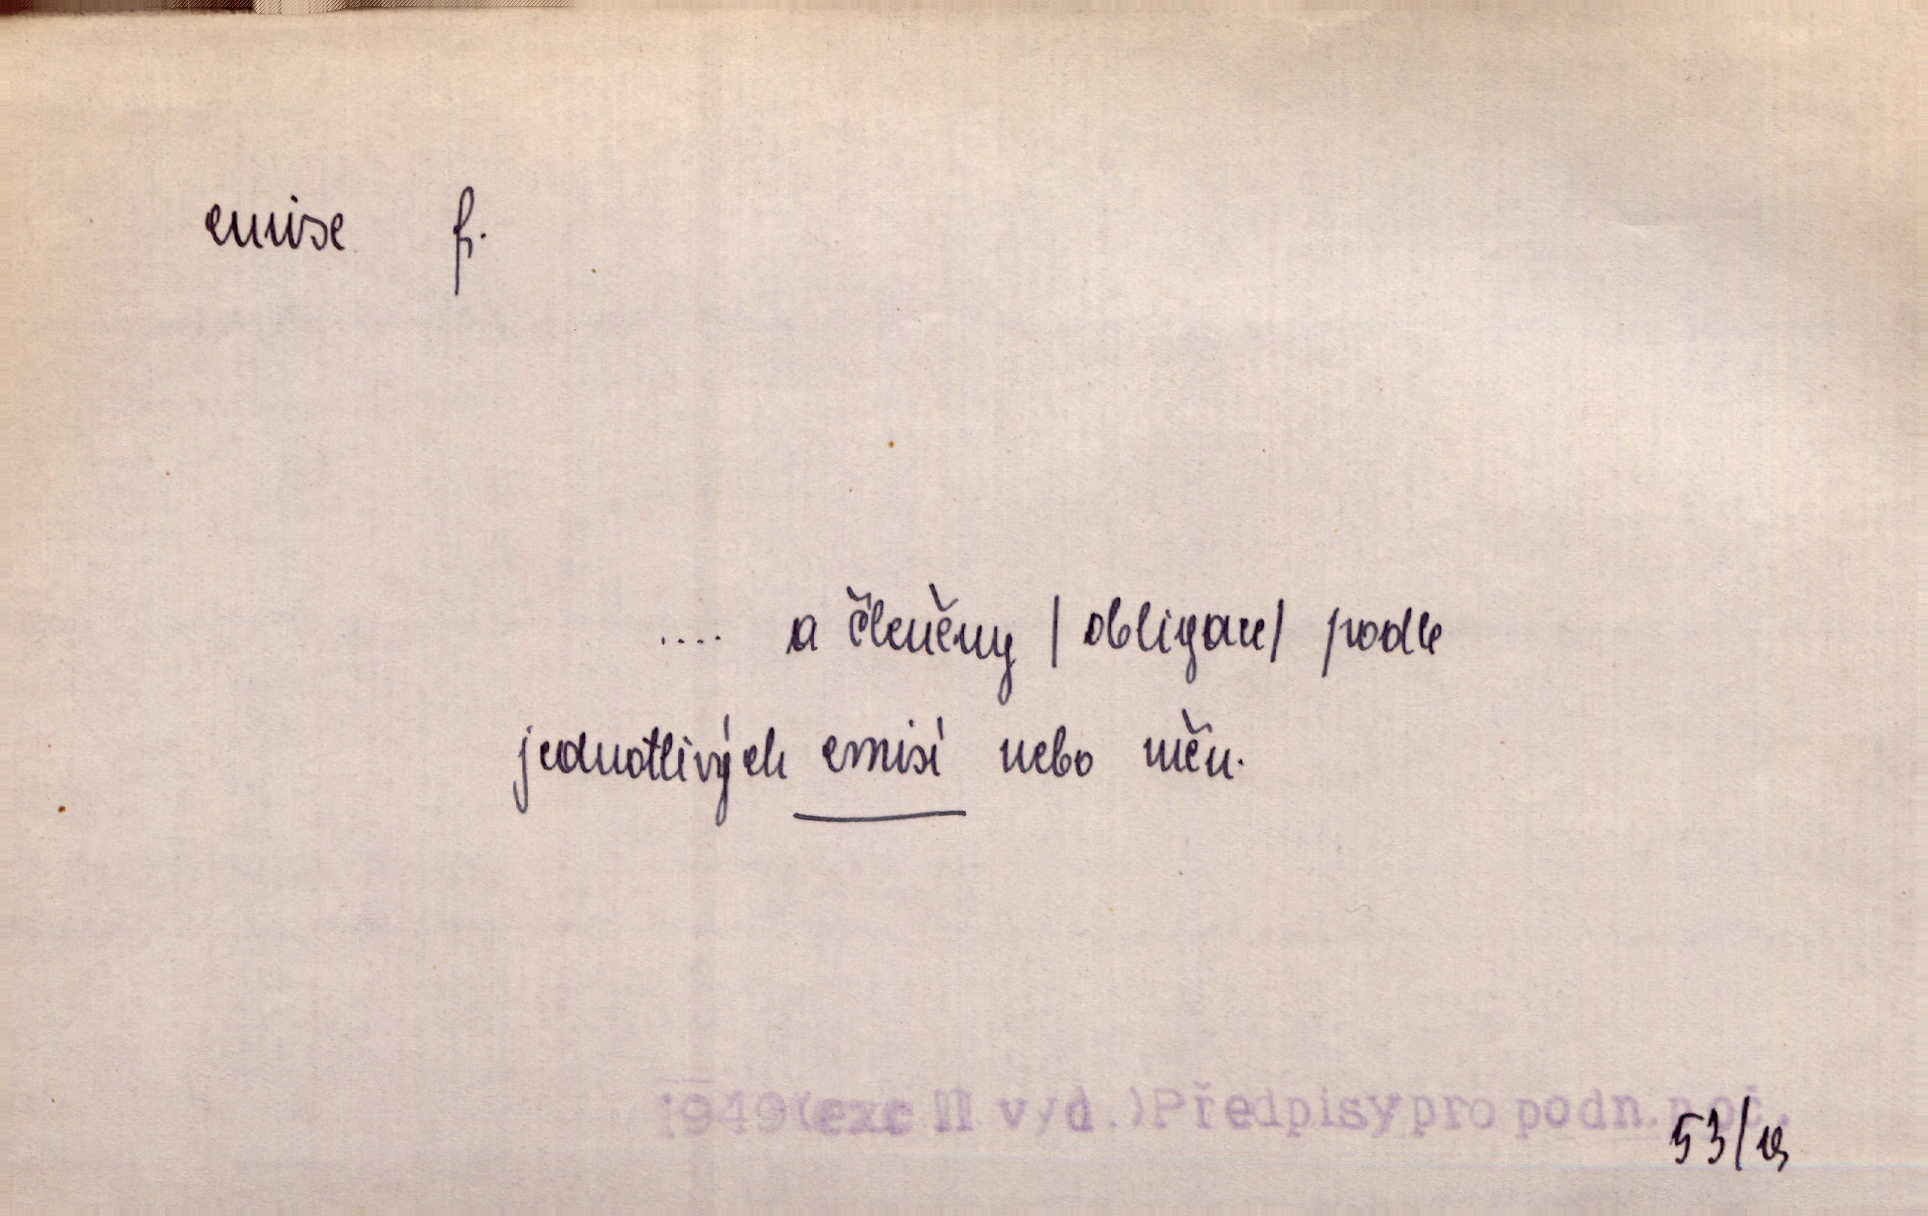 emise f.
.... a členěny /obligace/ podle
jednotlivých emisí nebo měn.
1949(exc II vyd.)Předpisy pro podn. poč.
53/19